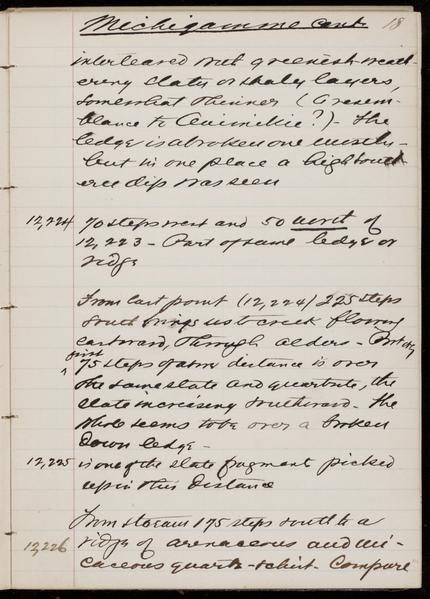 Michigamme cont. 18
interleaved with greenish weath
ering slaty or shaley layers,
somewhat thinner (A resem-
blance to Animikie?) - The
ledge is a broken one mostly -
but in one place a high south
ern dip was seen
12,224 70 steps west and 50 north of
12,223 - Part of same ledge or
ridge
From last point (12,224) 225 steps
south brings us to creek flowing
eastward, through alders -
first
75 steps of above distance is over
the same slate and quartzite, the
slate increasing southward. The
whole seems to be over a broken
down ledge -
12,225 is one of the slate fragments picked
up in this distance
From stream 175 steps south to a
12,226 ridge of arenaceous and mi-
caceous quartz-schist. Compare